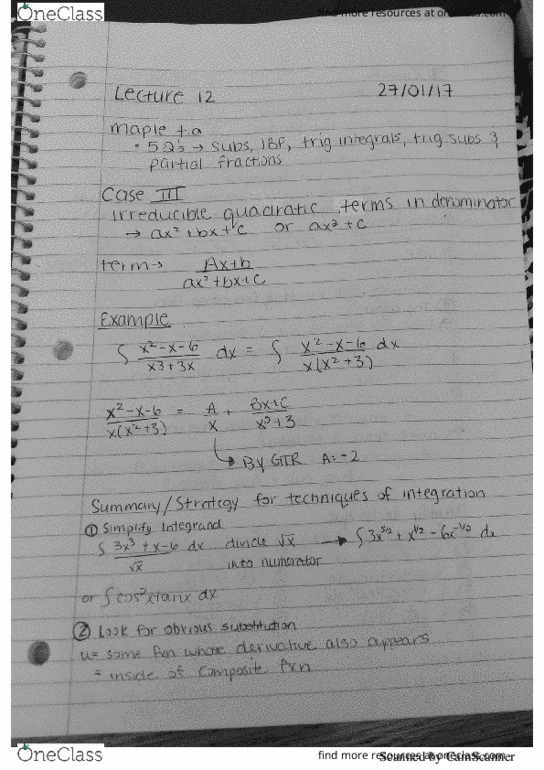 OneClass
find more resources at oneclass.com
Lecture 12 27/01/17
maple t.a
• 5 Q's → subs, IBP, trig integrals, trig subs &
partial fractions
Case III
irreducible quadratic terms in denominator
→ ax² + bx + c or ax² + c
term → Ax+b / ax² + bx + c
Example
∫ x²-x-6 / x3+3x dx = ∫ x²-x-6 / x(x²+3) dx
x²-x-6 / x(x²+3) = A / x + Bx+C / x²+3
↳ By GTR A=-2
Summary/Strategy for techniques of integration
① Simplify Integrand
∫ 3x³+x-6 / √x dx divide √x → ∫ 3x^5/2 + x^1/2 - 6x^-1/2 dx
into numerator
or ∫ cos²xtanx dx
② Look for obvious substitution
u= some fxn whose derivative also appears
= inside of composite fxn
OneClass
find more resources at oneclass.com
Scanned by CamScanner